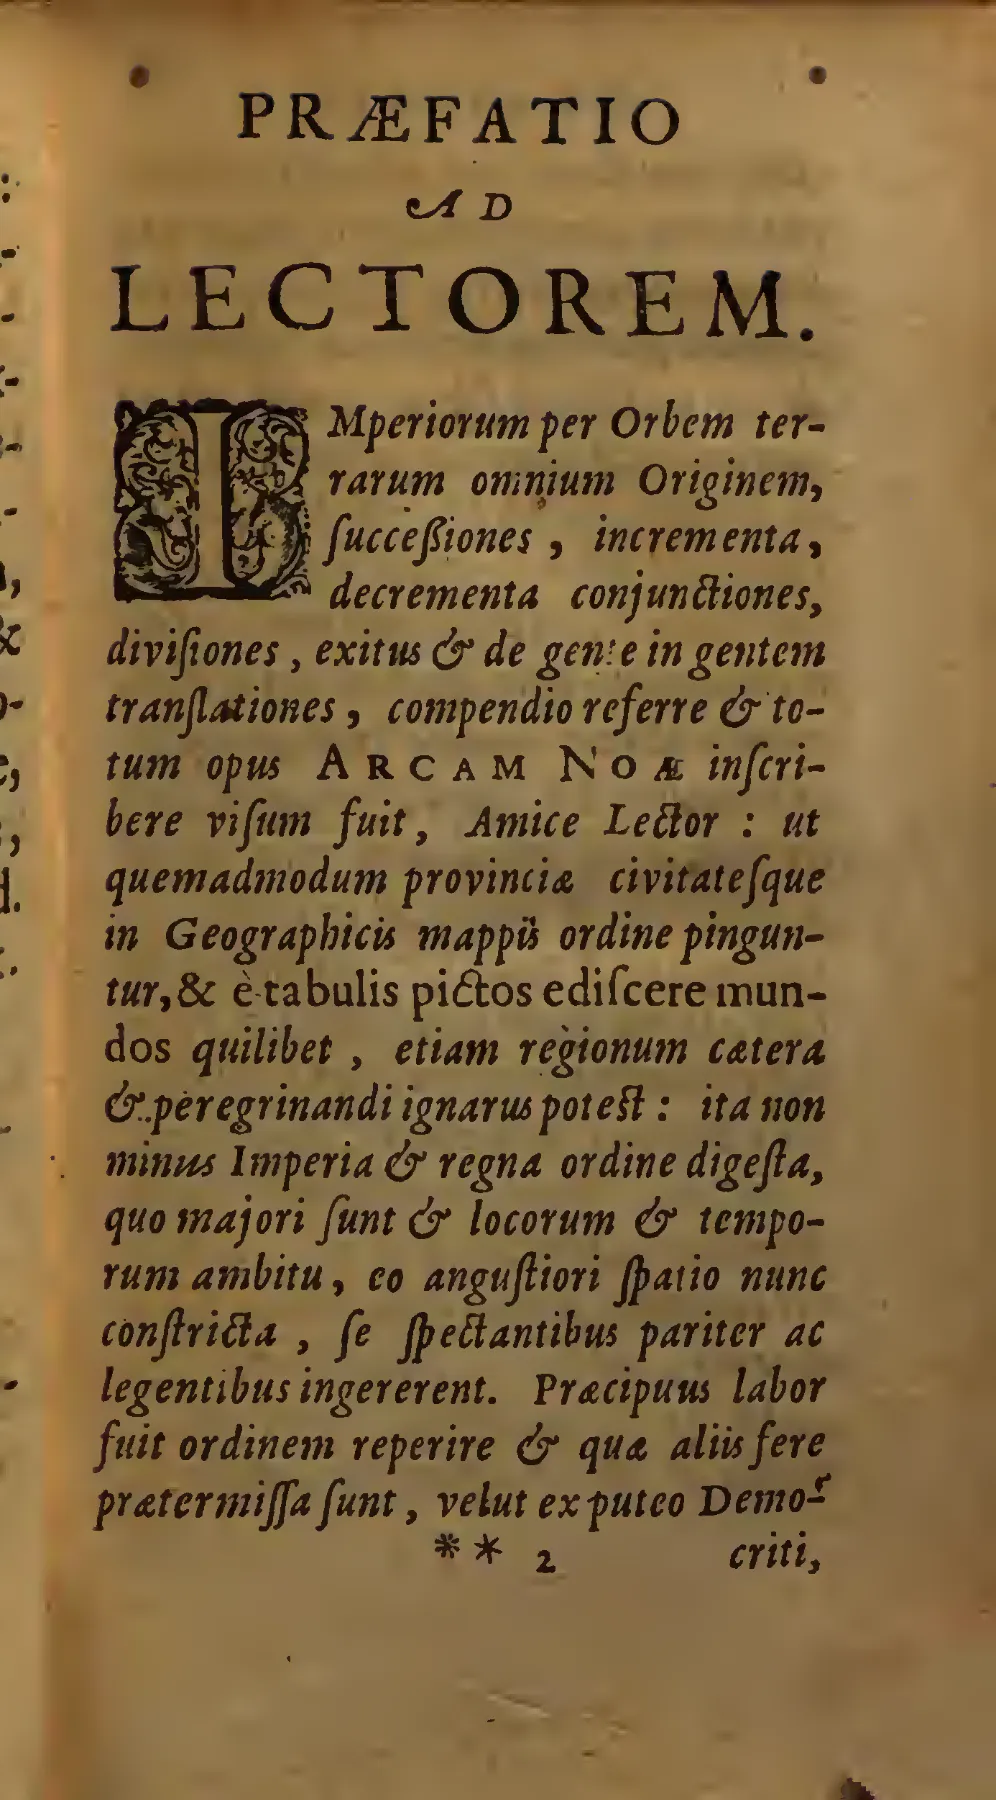 PRÆFATIO
AD
LECTOREM.
IMperiorum per Orbem ter-
rarum omnium Originem,
ſucceßiones, incrementa,
decrementa conjunctiones,
diviſiones, exitus & de gente in gentem
tranſlationes, compendio referre & to-
tum opus ARCAM NOÆ inſcri-
bere viſum fuit, Amice Lector : ut
quemadmodum provinciæ civitateſque
in Geographicis mappis ordine pingun-
tur, & è tabulis pictos ediſcere mun-
dos quilibet, etiam regionum cætera
& peregrinandi ignarus potest : ita non
minus Imperia & regna ordine digeſta,
quo majori ſunt & locorum & tempo-
rum ambitu, eo anguſtiori ſpatio nunc
conſtricta, ſe ſpectantibus pariter ac
legentibus ingererent. Præcipuus labor
fuit ordinem reperire & quæ aliis fere
prætermiſſa ſunt, velut ex puteo Demo-
** 2 criti,